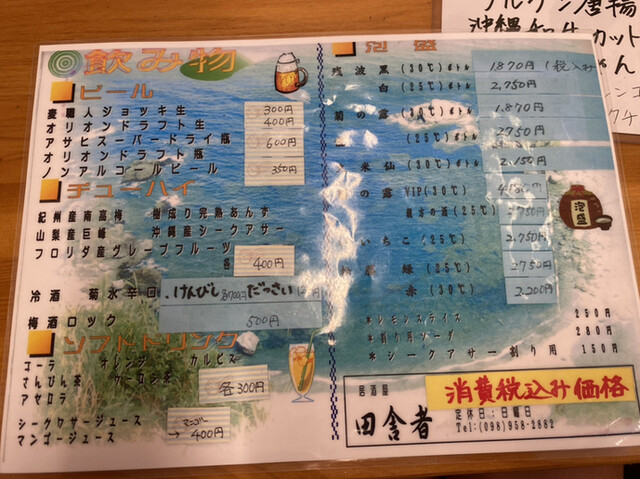 飲み物
ビール
麦職人ジョッキ生 300円
オリオンドラフト生 400円
アサヒスーパードライ瓶 600円
オリオンドラフト瓶
ノンアルコールビール 350円
チューハイ
紀州産南高梅 樹成り完熟あんず
山梨産巨峰 沖縄産シークアサー
フロリダ産グレープフルーツ
各 400円
冷酒 菊水辛口 けんびし 各700円 だっさい
梅酒ロック 500円
ソフトドリンク
コーラ オレンジ カルピス
さんぴん茶 ウーロン茶 各300円
アセロラ
シークワサージュース マンゴー
マンゴージュース →400円
泡盛
残波 黒 (30℃)ボトル 1.870円 (税込み
白 (25℃)ボトル 2,750円
菊の露 (30℃)ボトル 1.870円
(25℃)ボトル 2750円
米仙 (30℃)ボトル
の露 VIP(30℃)
(25℃) 2750円
いちこ (25℃) 2.750円
緑 (25℃) 2750円
赤 (30℃) 2,200円
*レモンスライス 250円
*割り用ソーダ 280円
*シークアサー割り用 150円
居酒屋
田舎者
消費税込み価格
定休日:日曜日
Tel:(098)958-2882
泡盛
沖縄
カット